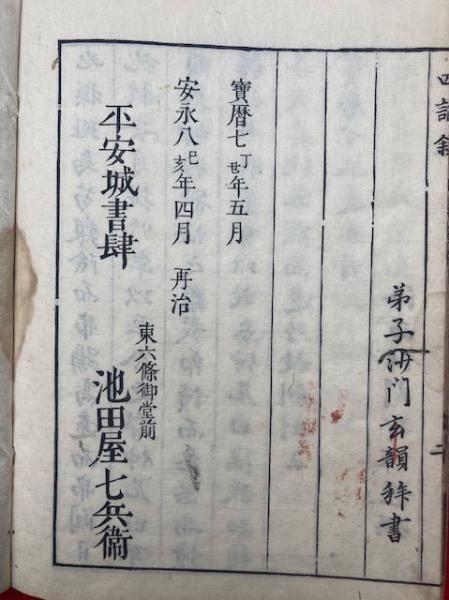 二
弟子沙門玄韻拜書
寶暦七丁丑年五月
安永八己亥年四月 再治
東六條御堂前
平安城書肆 池田屋七兵衞